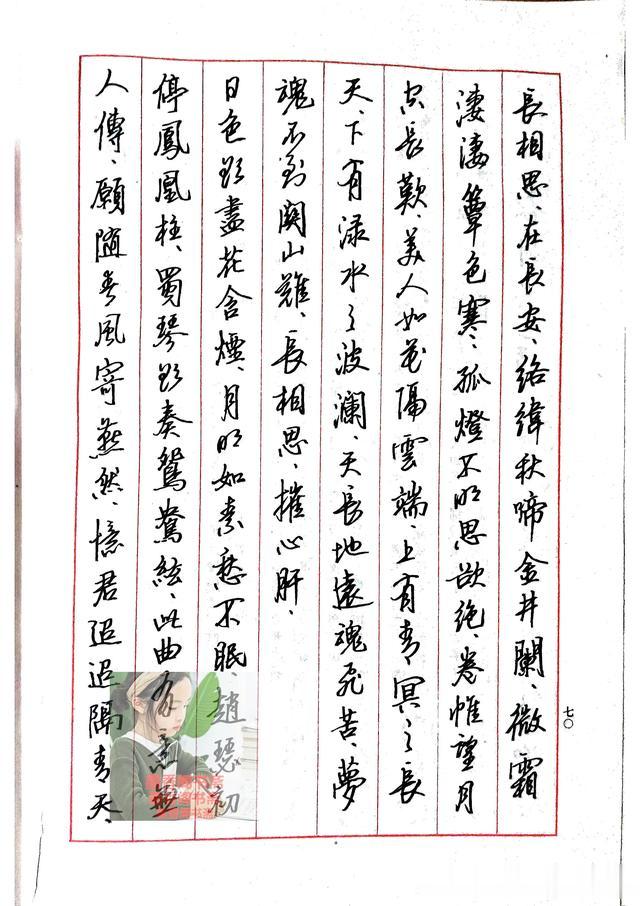 長相思、在長安、絡緯秋啼金井闌、微霜
淒淒簟色寒、孤燈不明思欲絕、卷帷望月
空長歎、美人如花隔雲端、上有青冥之長
天、下有淥水之波瀾、天長地遠魂飛苦、夢
魂不到關山難、長相思、摧心肝、
日色欲盡花含煙、月明如素愁不眠、趙瑟初
停鳳凰柱、蜀琴欲奏鴛鴦絃、此曲有意無
人傳、願隨春風寄燕然、憶君迢迢隔青天、
七〇